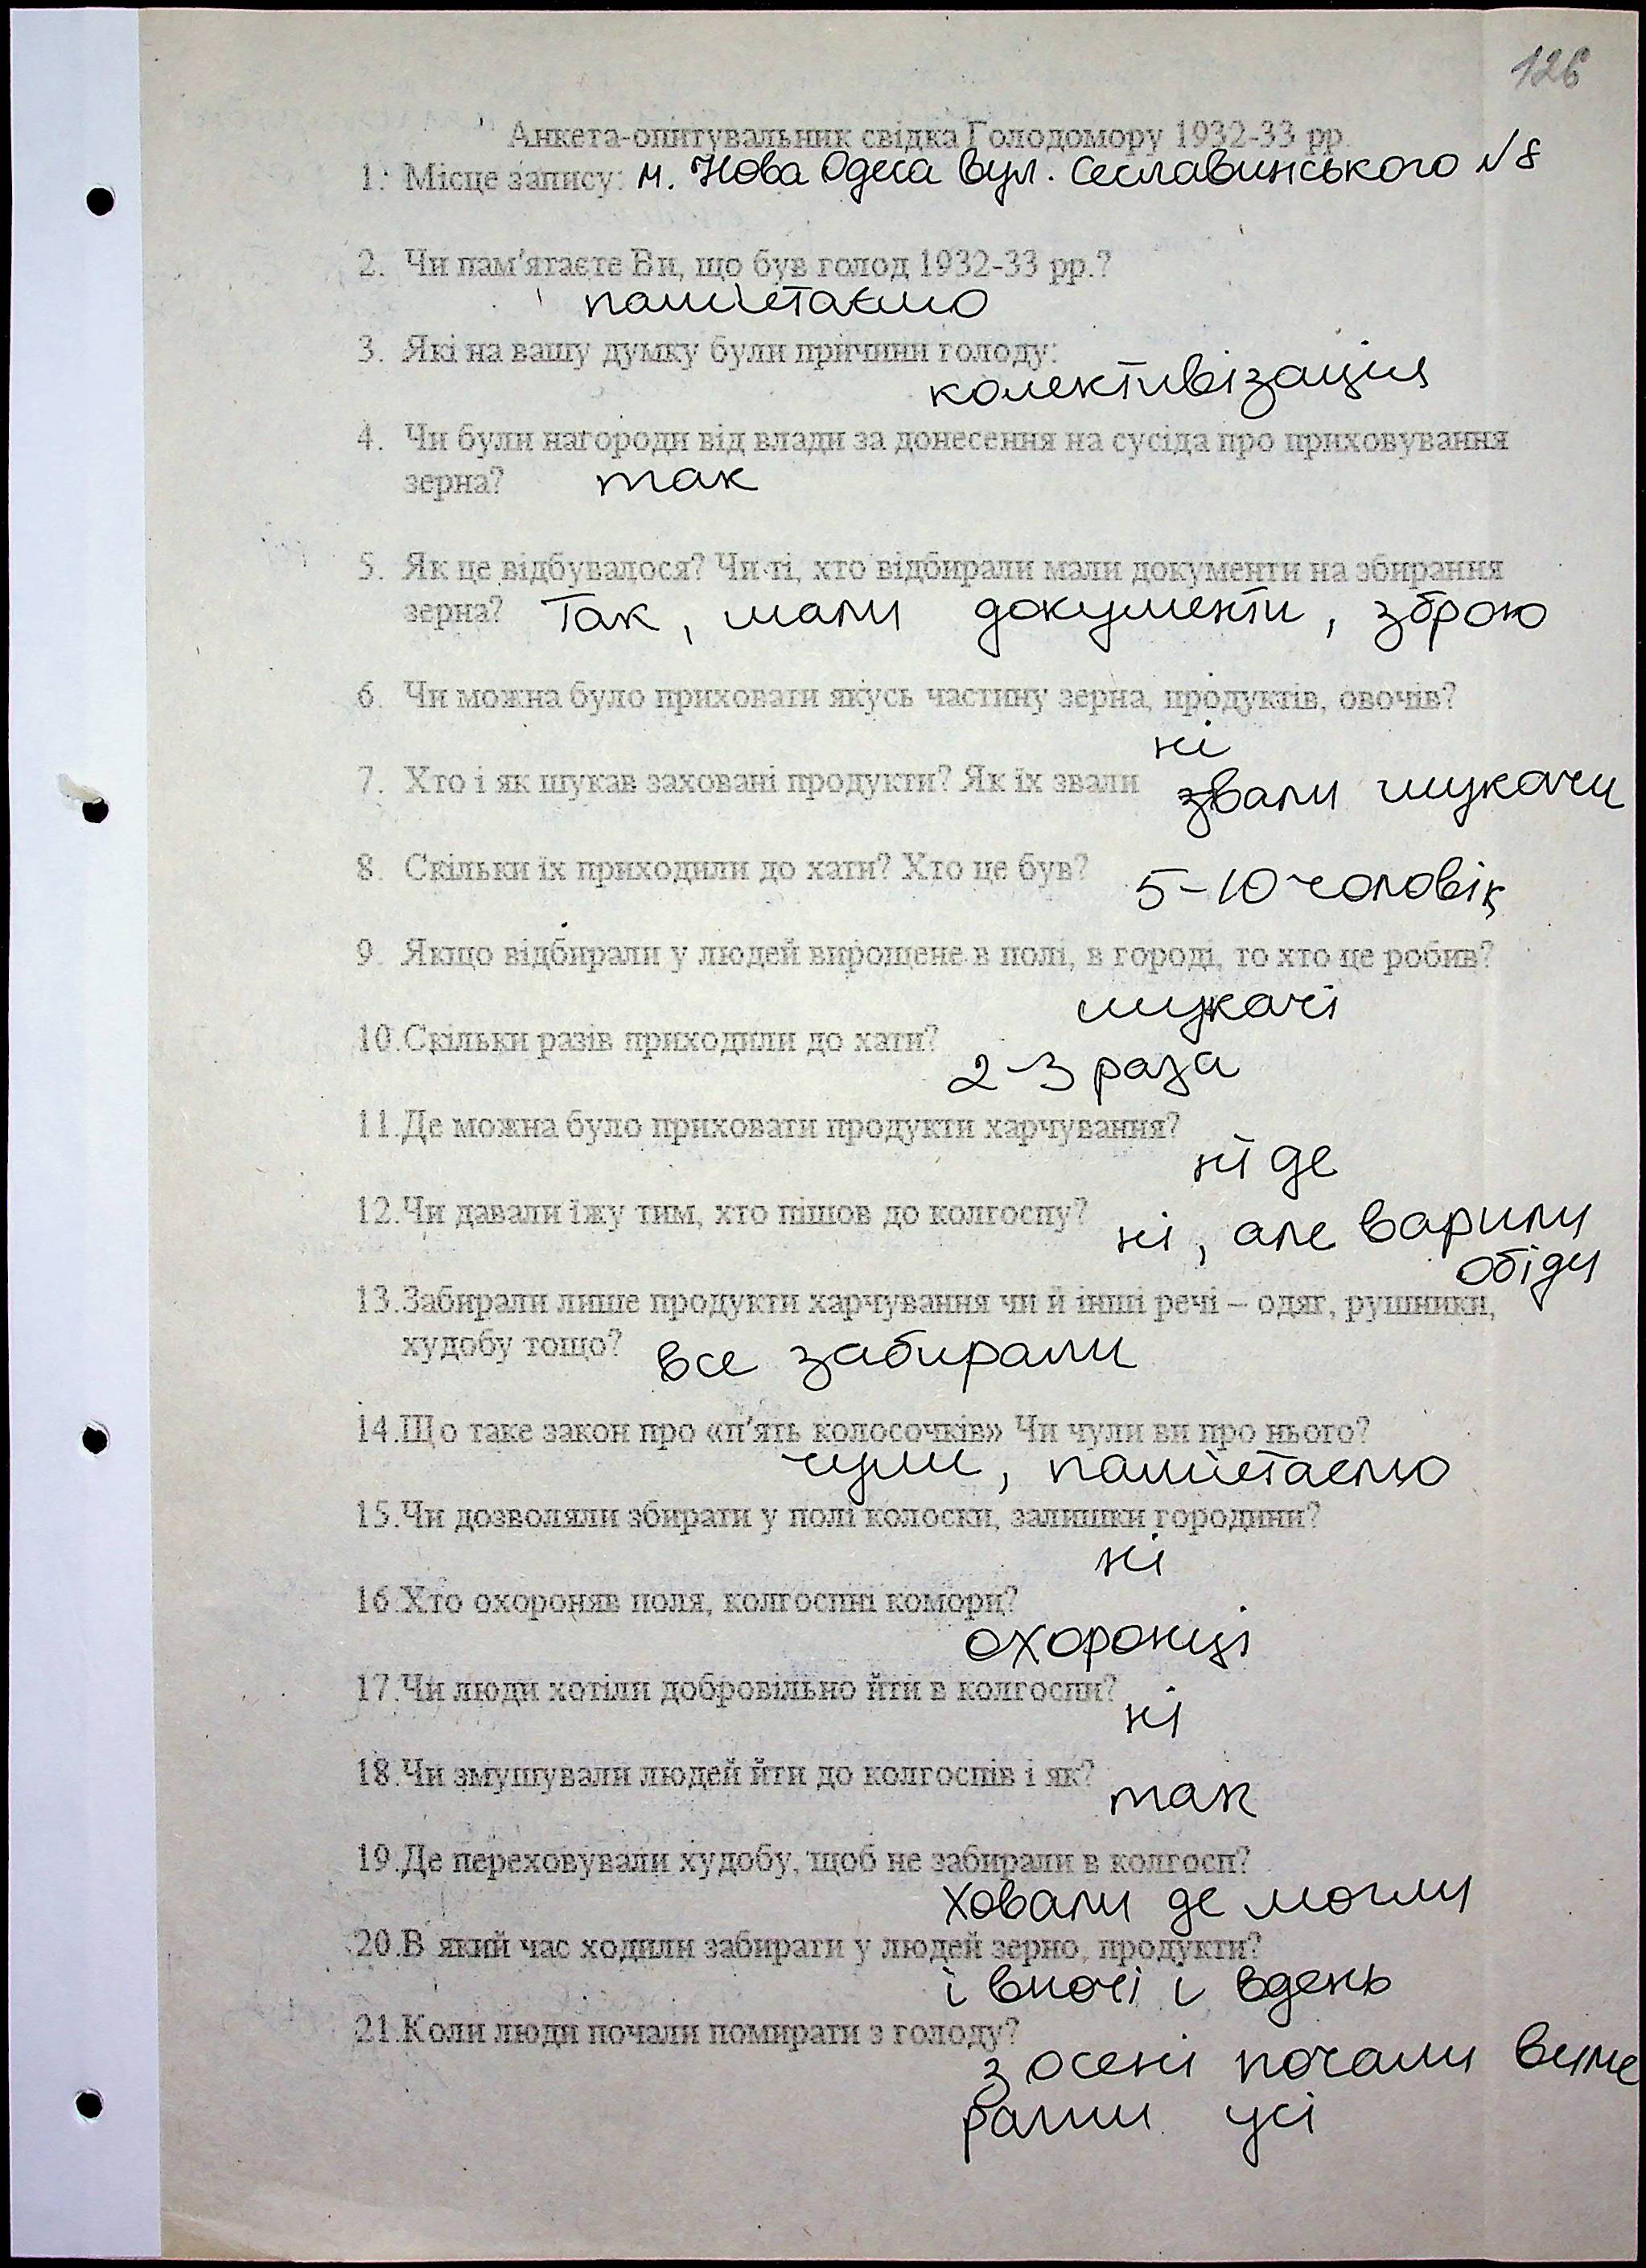 126
Анкета-опитувальник свідка Голодомору 1932-33 рр.
1. Місце запису: м. Нова Одеса вул. Сеславинського №8
2. Чи пам'ятаєте Ви, що був голод 1932-33 рр.?
памʼєтаємо
3. Які на вашу думку були причини голоду:
колективізация
4. Чи були нагороди від влади за донесення на сусіда про приховування
зерна? так
5. Як це відбувалося? Чи ті, хто відбирали мали документи на збирання
зерна? Так, мали документи, зброю
6. Чи можна було приховати якусь частину зерна, продуктів, овочів?
ні
7. Хто і як шукав заховані продукти? Як їх звали звали шукачи
8. Скільки їх приходили до хати? Хто це був? 5-10 чоловік
9. Якщо відбирали у людей вирощене в полі, в городі, то хто це робив?
шукачі
10. Скільки разів приходили до хати?
2-3 раза
11. Де можна було приховати продукти харчування?
ні де
12. Чи давали їжу тим, хто пішов до колгоспу? ні, але варили
обіди
13. Забирали лише продукти харчування чи й інші речі – одяг, рушники,
худобу тощо? все забирали
14. Що таке закон про «п'ять колосочків» Чи чули ви про нього?
чули, памʼєтаємо
15. Чи дозволяли збирати у полі колоски, залишки городини?
ні
16. Хто охороняв поля, колгоспні комори?
охоронці
17. Чи люди хотіли добровільно йти в колгоспи?
ні
18. Чи змушували людей йти до колгоспів і як?
так
19. Де переховували худобу, щоб не забирали в колгосп?
ховали де могли
20. В який час ходили забирати у людей зерно, продукти?
і вночі і вдень
21. Коли люди почали помирати з голоду?
з осені почали виме
рати усі